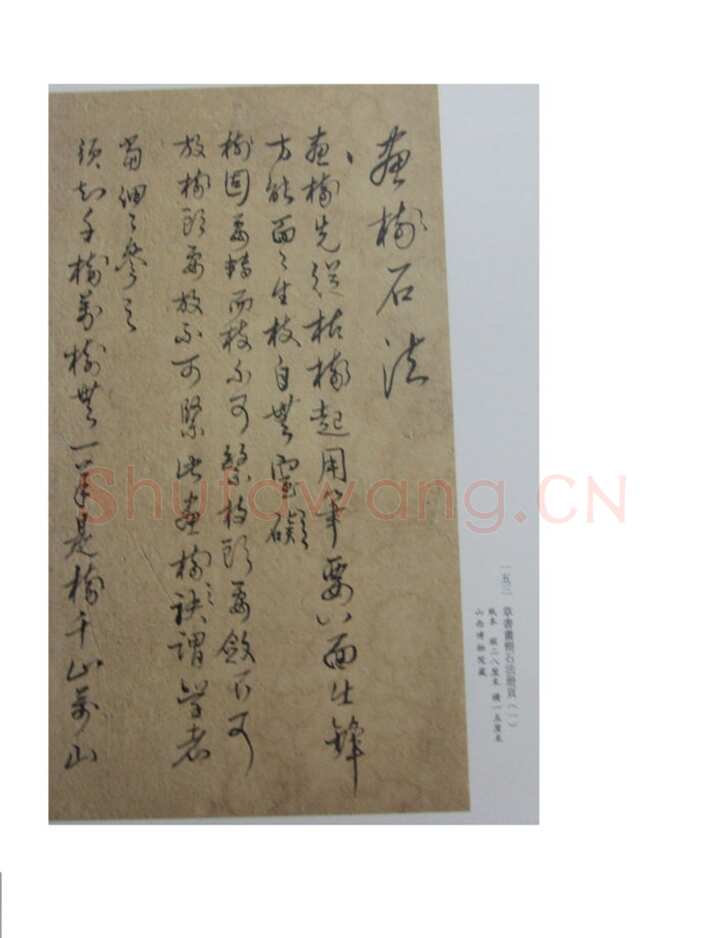 畫樹石法
畫樹先從枯樹起用筆要八面生鋒
方能面〻生枝自無窒礙
樹固要轉而枝不可繁枝頭要斂不可
放樹頭要放不可緊此畫樹之訣謂學者
當細〻參之
須知千樹萬樹無一筆是樹千山萬山
一五三 草書畫樹石法冊頁(一)
紙本 縱二八厘米 橫一五厘米
山西博物院藏
Shufawang.CN